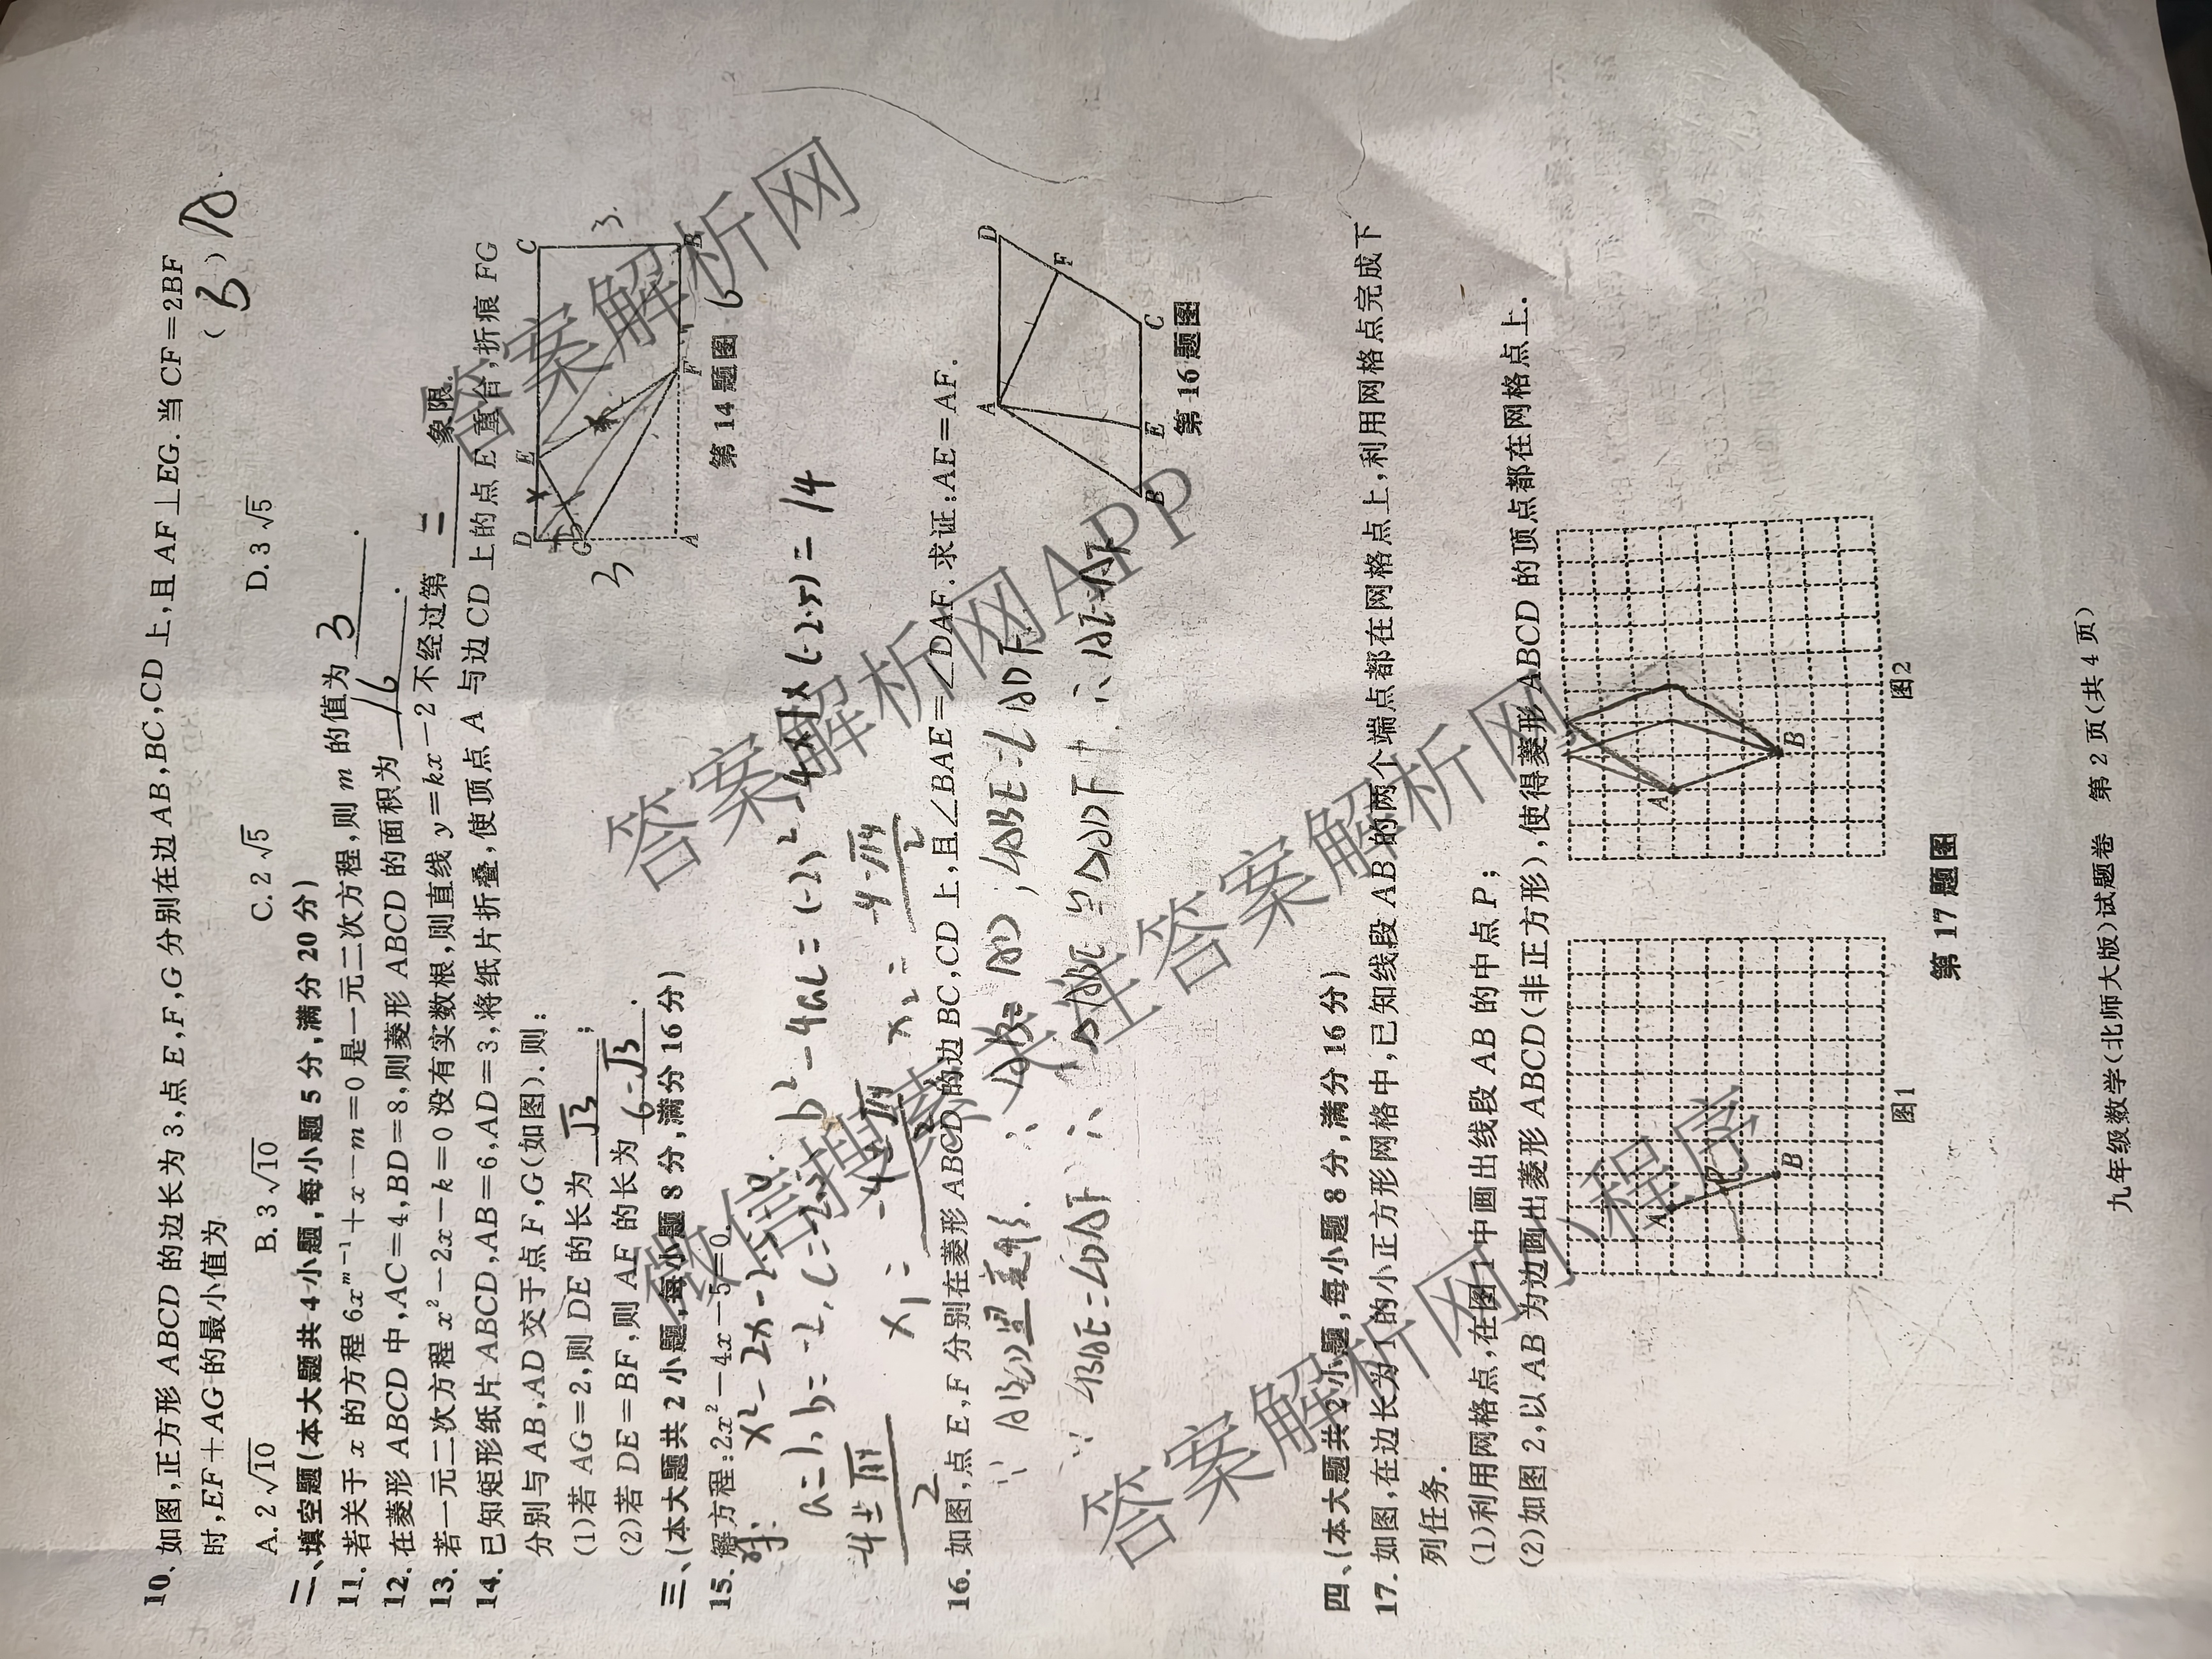 10. 如图,正方形 ABCD 的边长为 3,点 E,F,G 分别在边 AB,BC,CD 上,且 AF⊥EG. 当 CF=2BF
时,EF+AG 的最小值为 ( B )
A. 2√10 B. 3√10 C. 2√5 D. 3√5
二、填空题(本大题共 4 小题,每小题 5 分,满分 20 分)
11. 若关于 x 的方程 6x^{m-1}+x-m=0 是一元二次方程,则 m 的值为 3 .
12. 在菱形 ABCD 中,AC=4,BD=8,则菱形 ABCD 的面积为 16 .
13. 若一元二次方程 x²-2x-k=0 没有实数根,则直线 y=kx-2 不经过第 一 象限.
14. 已知矩形纸片 ABCD,AB=6,AD=3,将纸片折叠,使顶点 A 与边 CD 上的点 E 重合,折痕 FG
分别与 AB,AD 交于点 F,G(如图).则:
(1)若 AG=2,则 DE 的长为 √3 ;
(2)若 DE=BF,则 AF 的长为 6-√3 .
D E C
G 3 3
A F B
第 14 题图 6
三、(本大题共 2 小题,每小题 8 分,满分 16 分)
15. 解方程:2x²-4x-5=0.
解: x²-2x-2.5=0.
a=1, b=-2, c=-2.5 b²-4ac=(-2)²-4×1×(-2.5)=14
16. 如图,点 E,F 分别在菱形 ABCD 的边 BC,CD 上,且∠BAE=∠DAF. 求证:AE=AF.
∴ AB=AD, ∠ABE=∠ADF.
∵ ∠BAE=∠DAF ∴ △ABE≌△ADF ∴ AE=AF
A D
F
B E C
第 16 题图
四、(本大题共 2 小题,每小题 8 分,满分 16 分)
17. 如图,在边长为 1 的小正方形网格中,已知线段 AB 的两个端点都在网格点上,利用网格点完成下
列任务.
(1)利用网格点,在图 1 中画出线段 AB 的中点 P;
(2)如图 2,以 AB 为边画出菱形 ABCD(非正方形),使得菱形 ABCD 的顶点都在网格点上.
A P B
图1
A B
图2
第 17 题图
九年级数学(北师大版)试题卷 第 2 页(共 4 页)
答案解析网
答案解析网
答案解析网APP
答案解析网
答案解析网小程序